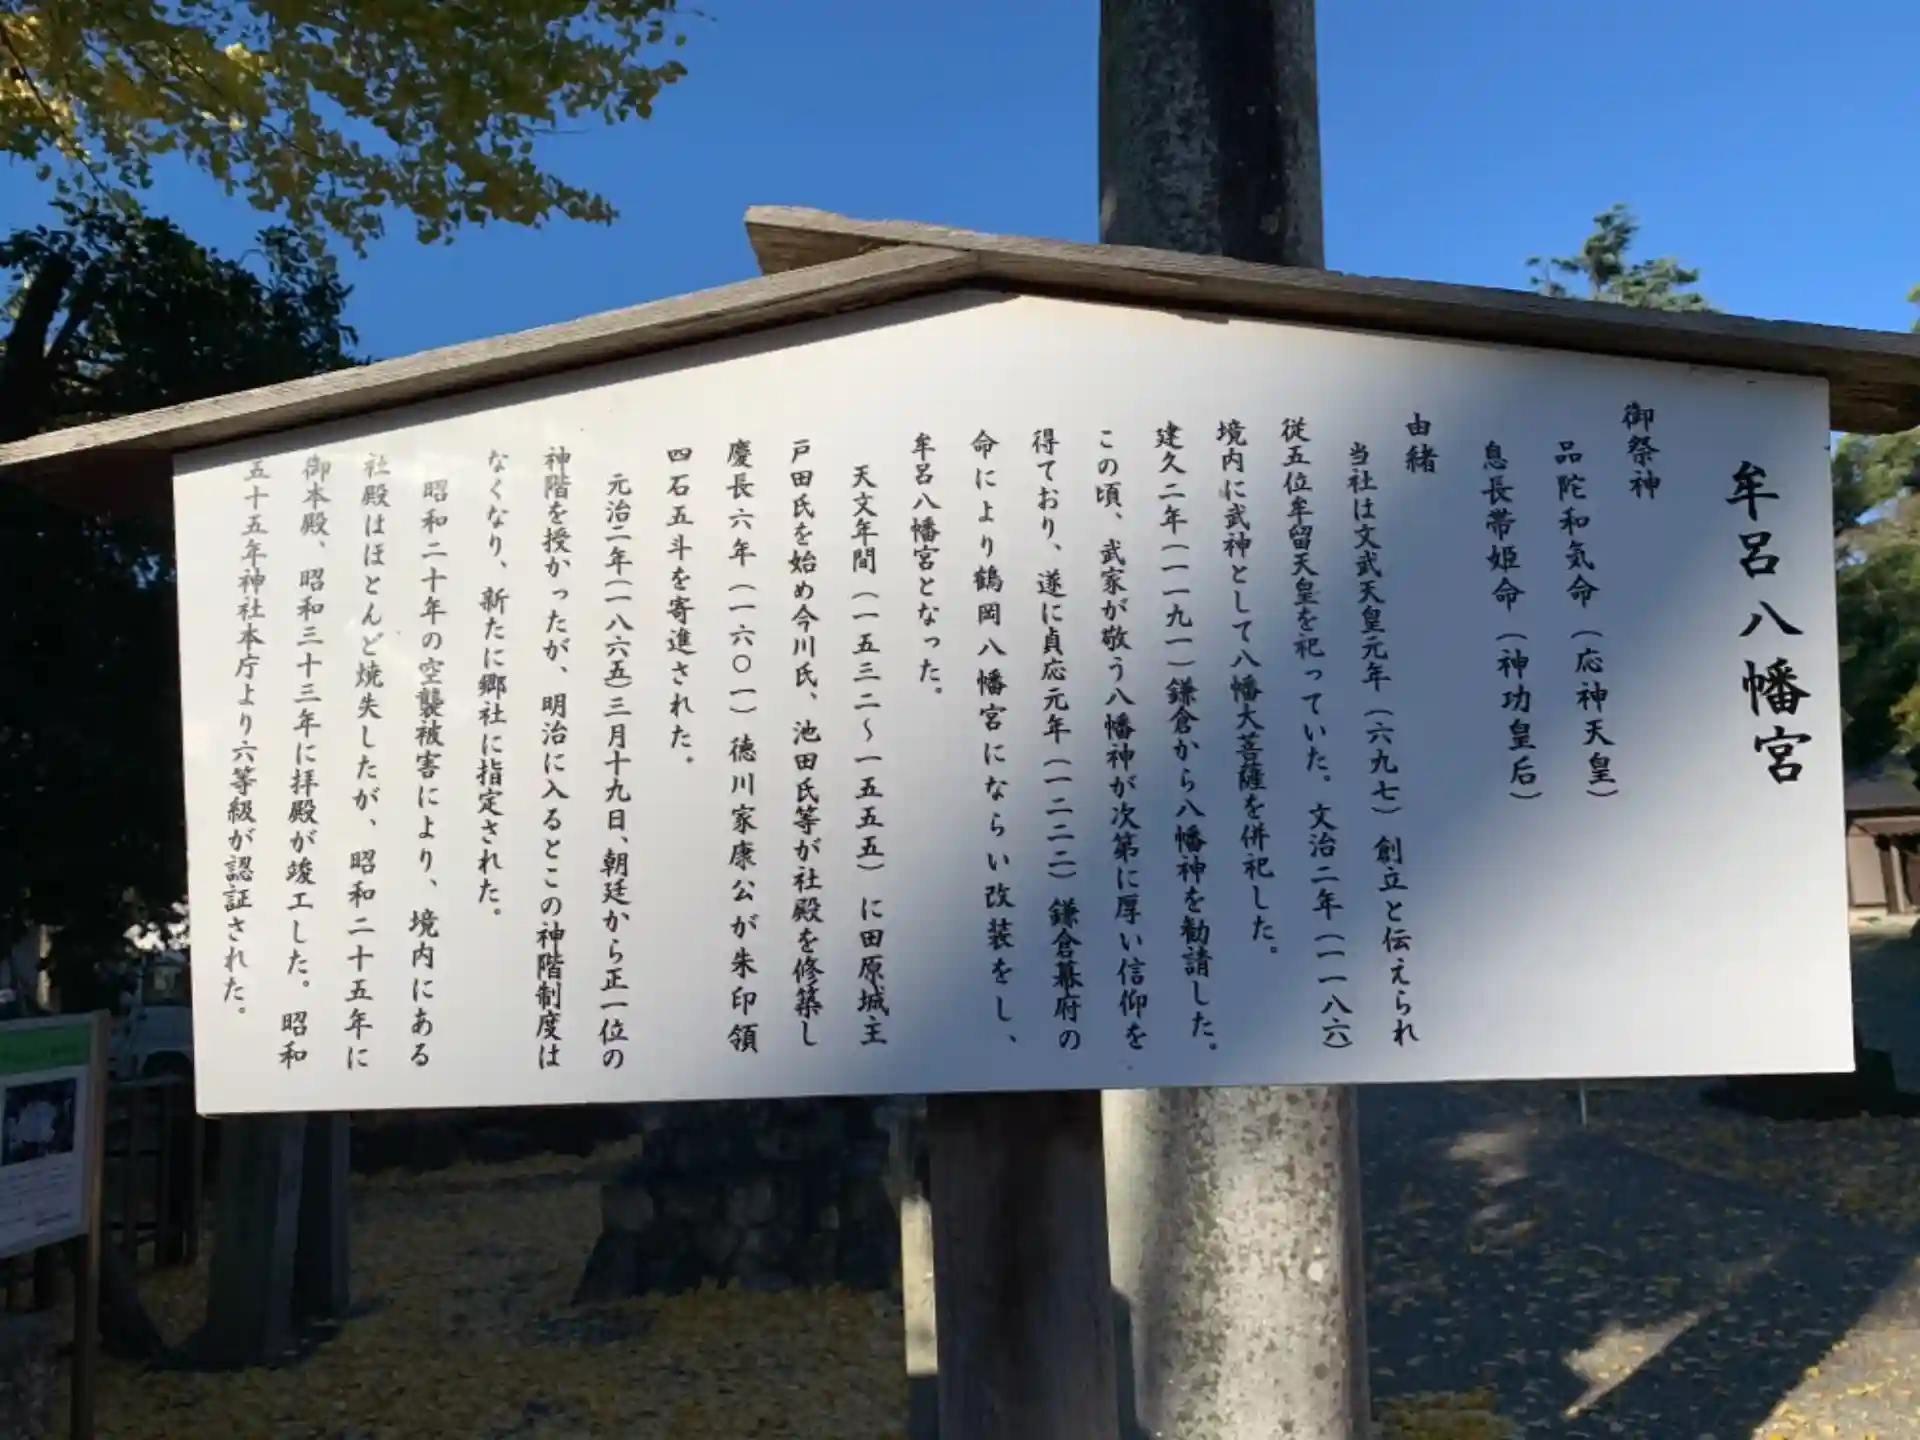 牟呂八幡宮
御祭神
品陀和気命（応神天皇）
息長帯姫命（神功皇后）
由緒
当社は文武天皇元年（六九七）創立と伝えられ
従五位牟留天皇を祀っていた。文治二年（一一八六）
境内に武神として八幡大菩薩を併祀した。
建久二年（一一九一）鎌倉から八幡神を勧請した。
この頃、武家が敬う八幡神が次第に厚い信仰を
得ており、遂に貞応元年（一二二二）鎌倉幕府の
命により鶴岡八幡宮にならい改装をし、
牟呂八幡宮となった。
天文年間（一五三二～一五五五）に田原城主
戸田氏を始め今川氏、池田氏等が社殿を修築し
慶長六年（一六〇一）徳川家康公が朱印領
四石五斗を寄進された。
元治二年（一八六五）三月十九日、朝廷から正一位の
神階を授かったが、明治に入るとこの神階制度は
なくなり、新たに郷社に指定された。
昭和二十年の空襲被害により、境内にある
社殿はほとんど焼失したが、昭和二十五年に
御本殿、昭和三十三年に拝殿が竣工した。昭和
五十五年神社本庁より六等級が認証された。